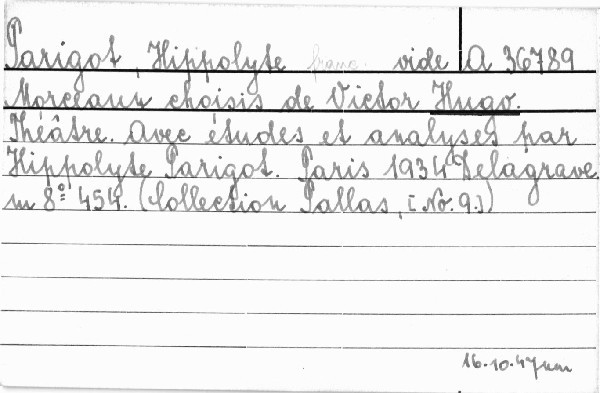 Parigot, Hippolyte franc. vide A 36789
Morceaux choisis de Victor Hugo.
Théâtre. Avec études et analyses par
Hippolyte Parigot. Paris 1934 Delagrave.
in 8° 454. (Collection Pallas, [No. 9.])
16.10.47